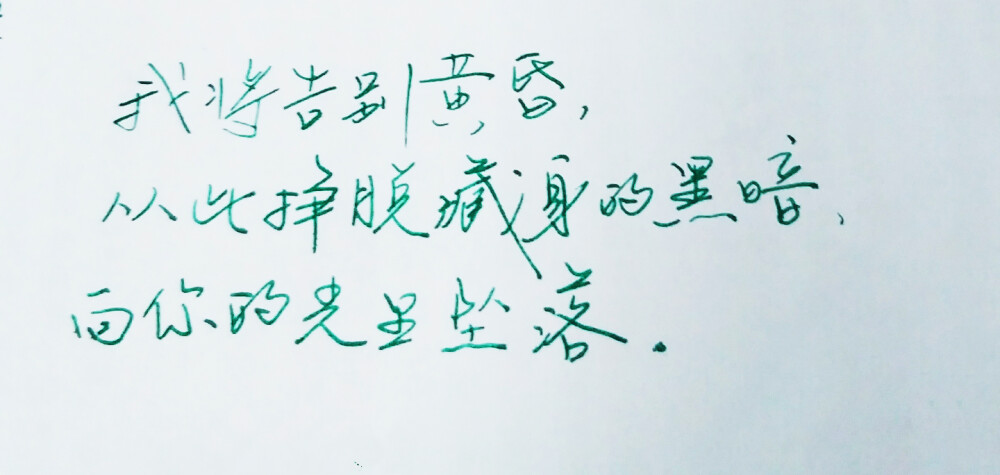 我将告别黄昏,
从此挣脱藏身的黑暗,
向你的光里坠落.